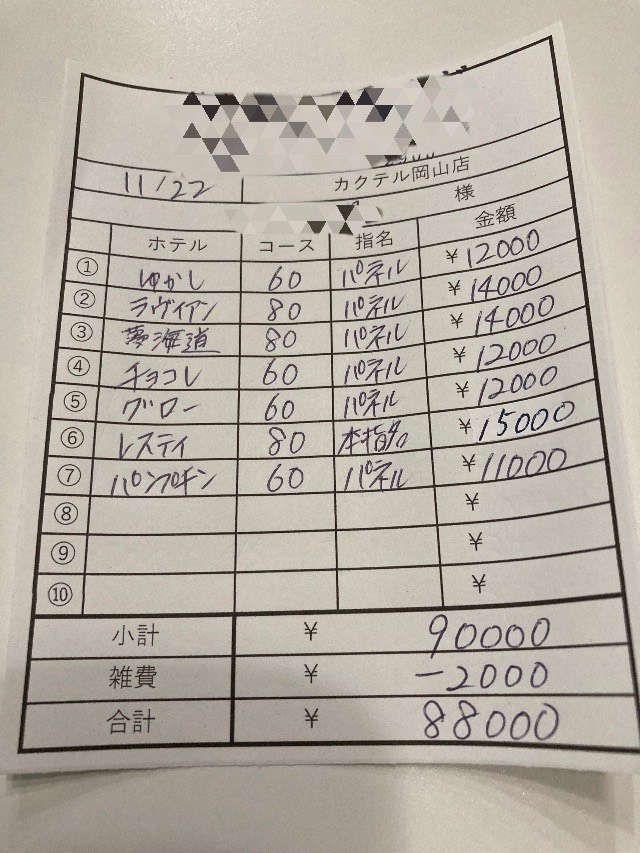 11/22 カクテル岡山店
様
ホテル コース 指名 金額
① ゆかし 60 パネル ¥12000
② ラヴィアン 80 パネル ¥14000
③ 夢海道 80 パネル ¥14000
④ チョコレ 60 パネル ¥12000
⑤ グロー 60 パネル ¥12000
⑥ レスティ 80 本指名 ¥15000
⑦ パンプキン 60 パネル ¥11000
⑧ ¥
⑨ ¥
⑩ ¥
小計 ¥ 90000
雑費 ¥ -2000
合計 ¥ 88000